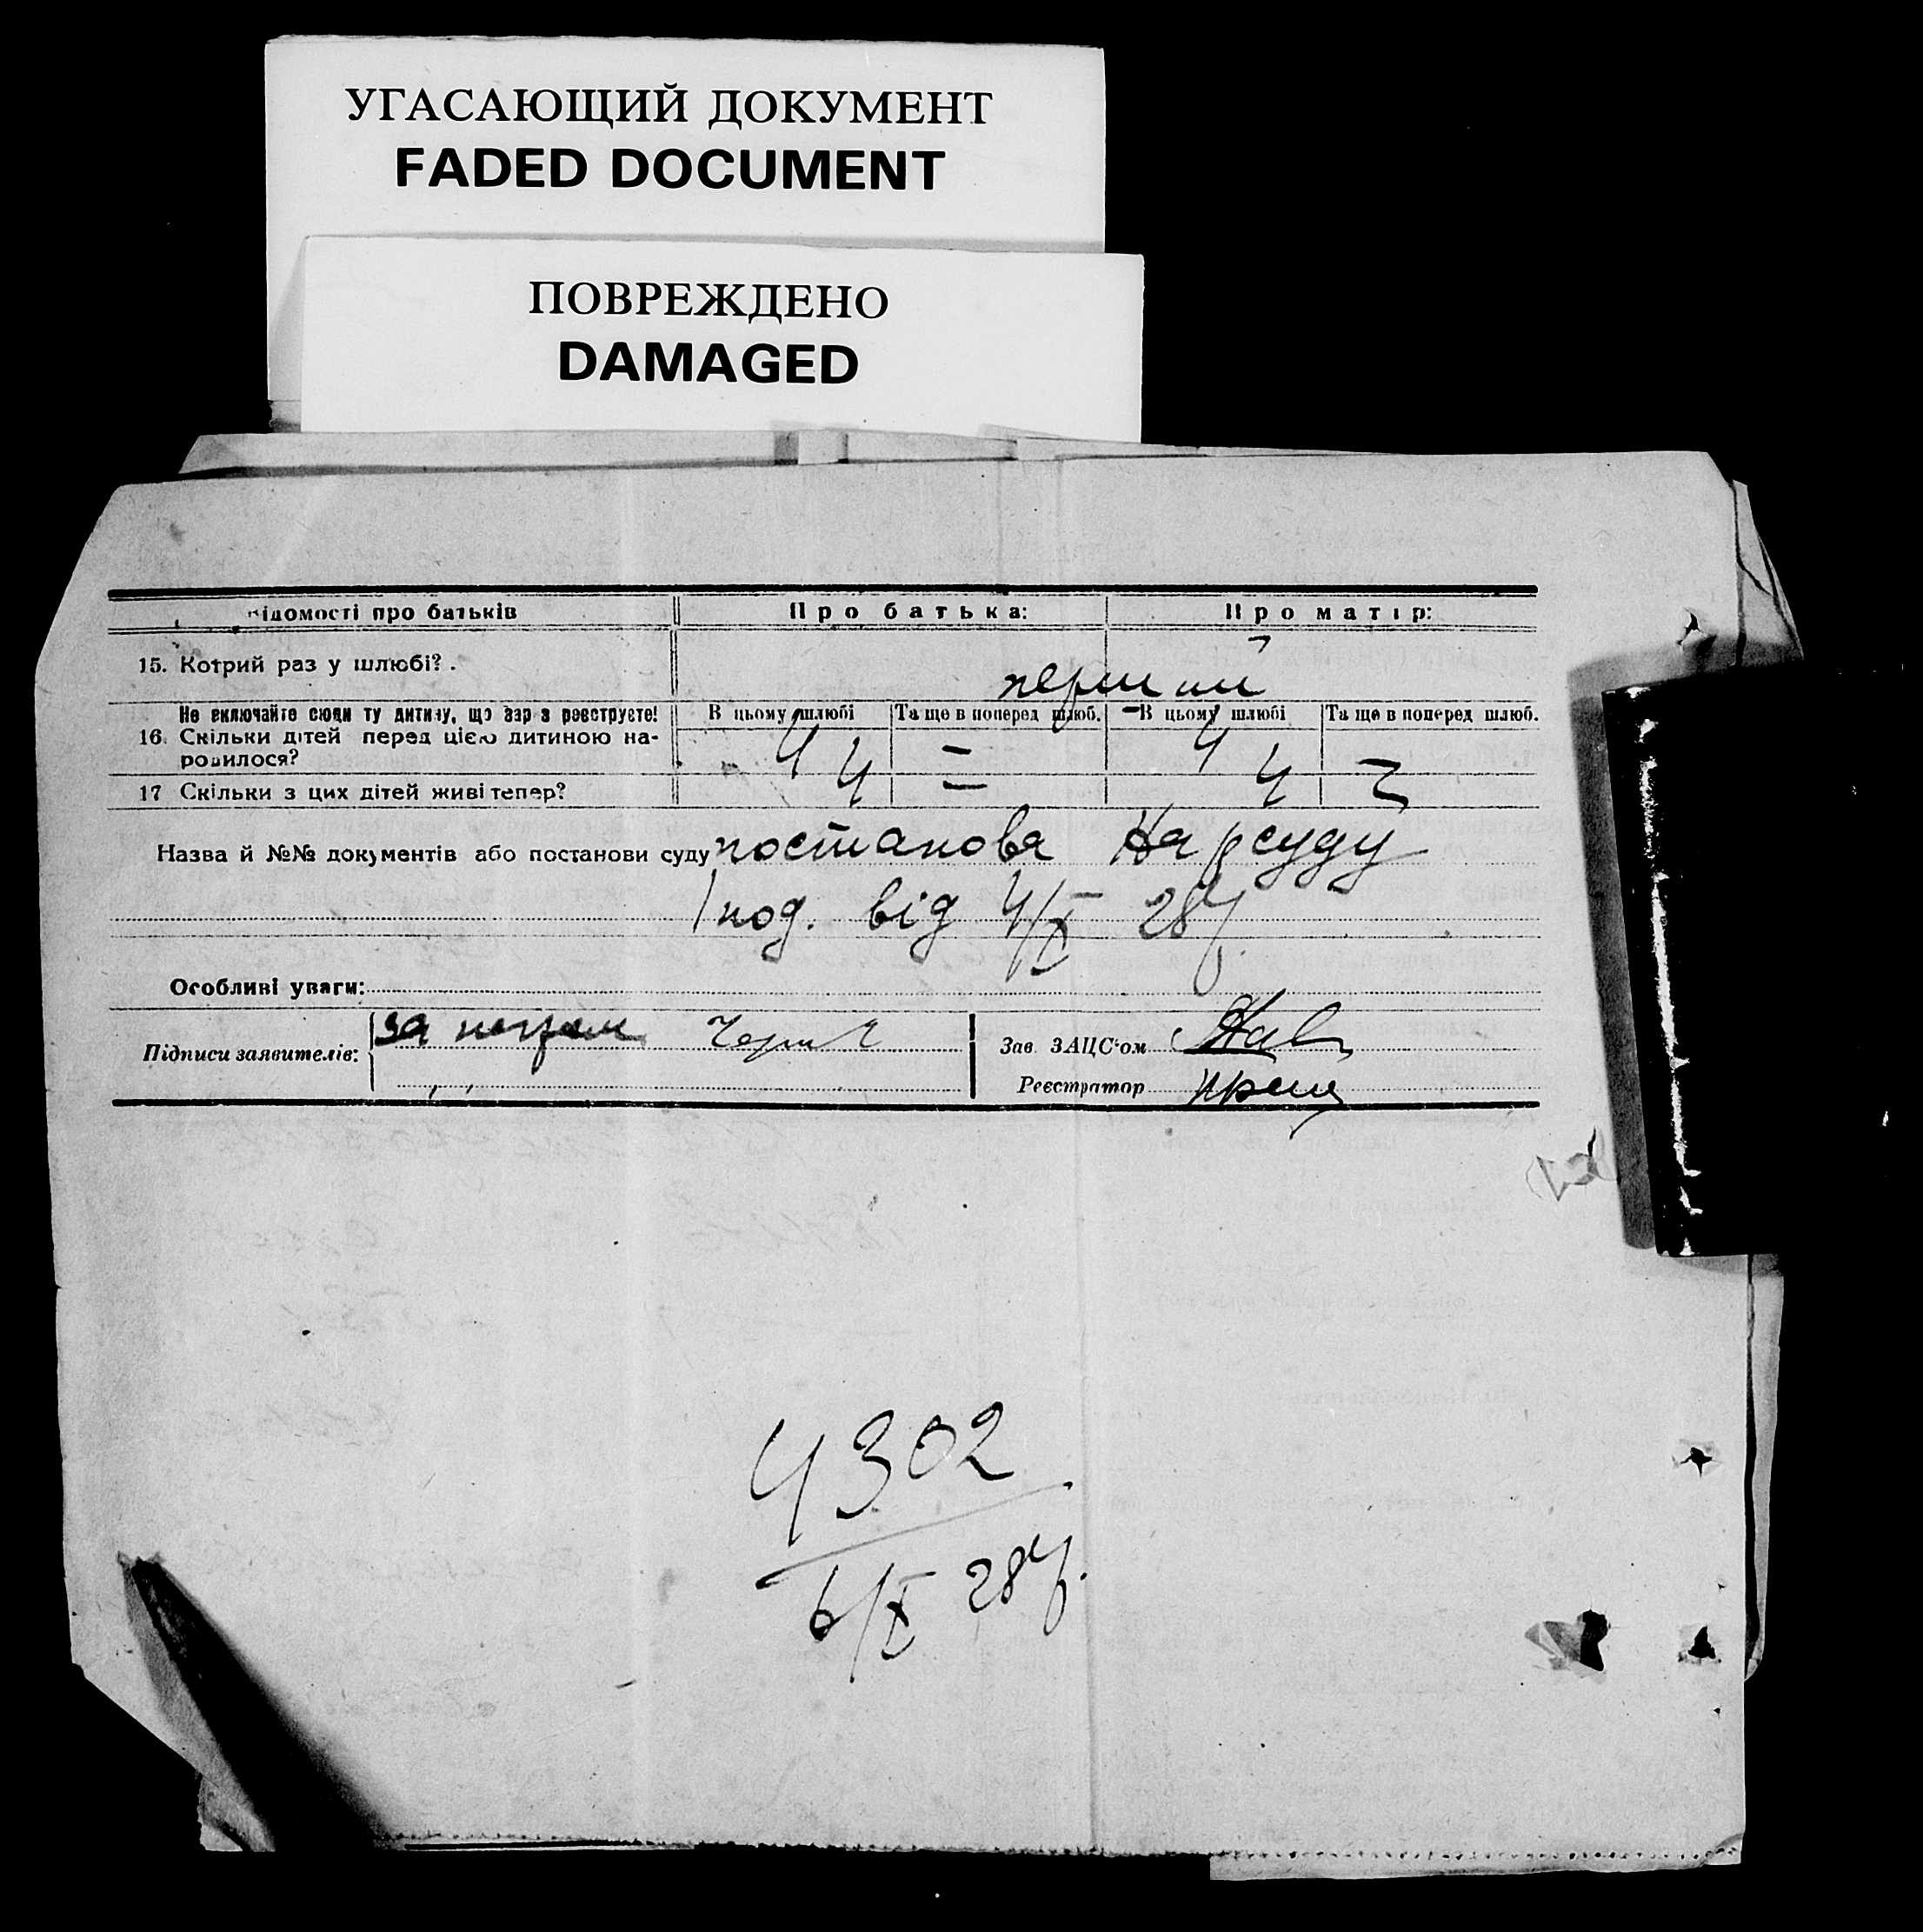 УГАСАЮЩИЙ ДОКУМЕНТ
FADED DOCUMENT
ПОВРЕЖДЕНО
DAMAGED
відомості про батьків Про батька: Про матір:
15. Котрий раз у шлюбі?. перший
Не включайте сюди ту дитину, що зараз реєструєте! В цьому шлюбі Та ще в поперед шлюб. В цьому шлюбі Та ще в поперед шлюб.
16. Скільки дітей перед цією дитиною на-
родилося? 4 — 4 —
17 Скільки з цих дітей живі тепер? 4 — 4 —
Назва й №№ документів або постанови суду постанова Нарсуду
од. від 4/X 28р.
Особливі уваги:
Підписи заявителів: за
Зав. ЗАЦС'ом
Реєстратор
4302
6/X 28р.